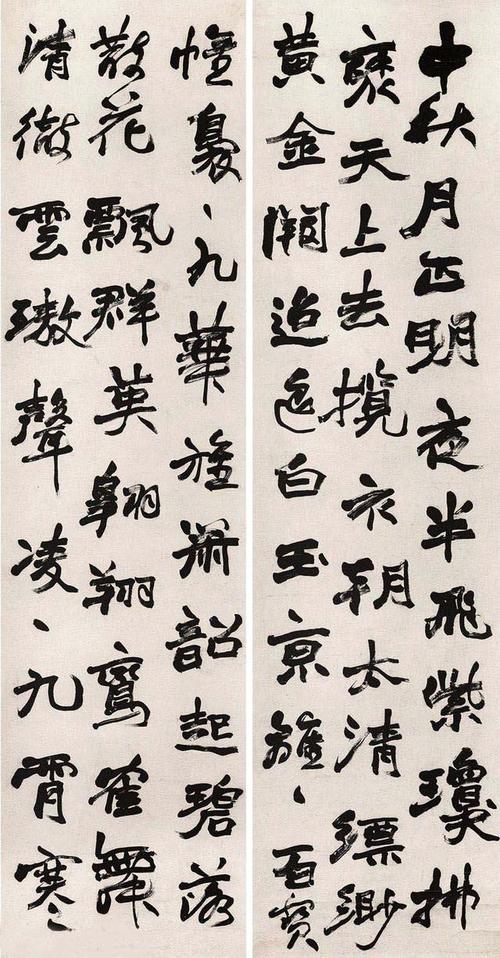 中秋月正明夜半飛紫瓊拂
褎天上去攬衣朝太清縹緲
黃金闕迢白玉京、百寶
幢裊、九華旌簫韶起碧落
散花飄群英翱翔鸞隺舞
清徹雲璈聲凌、九霄寒